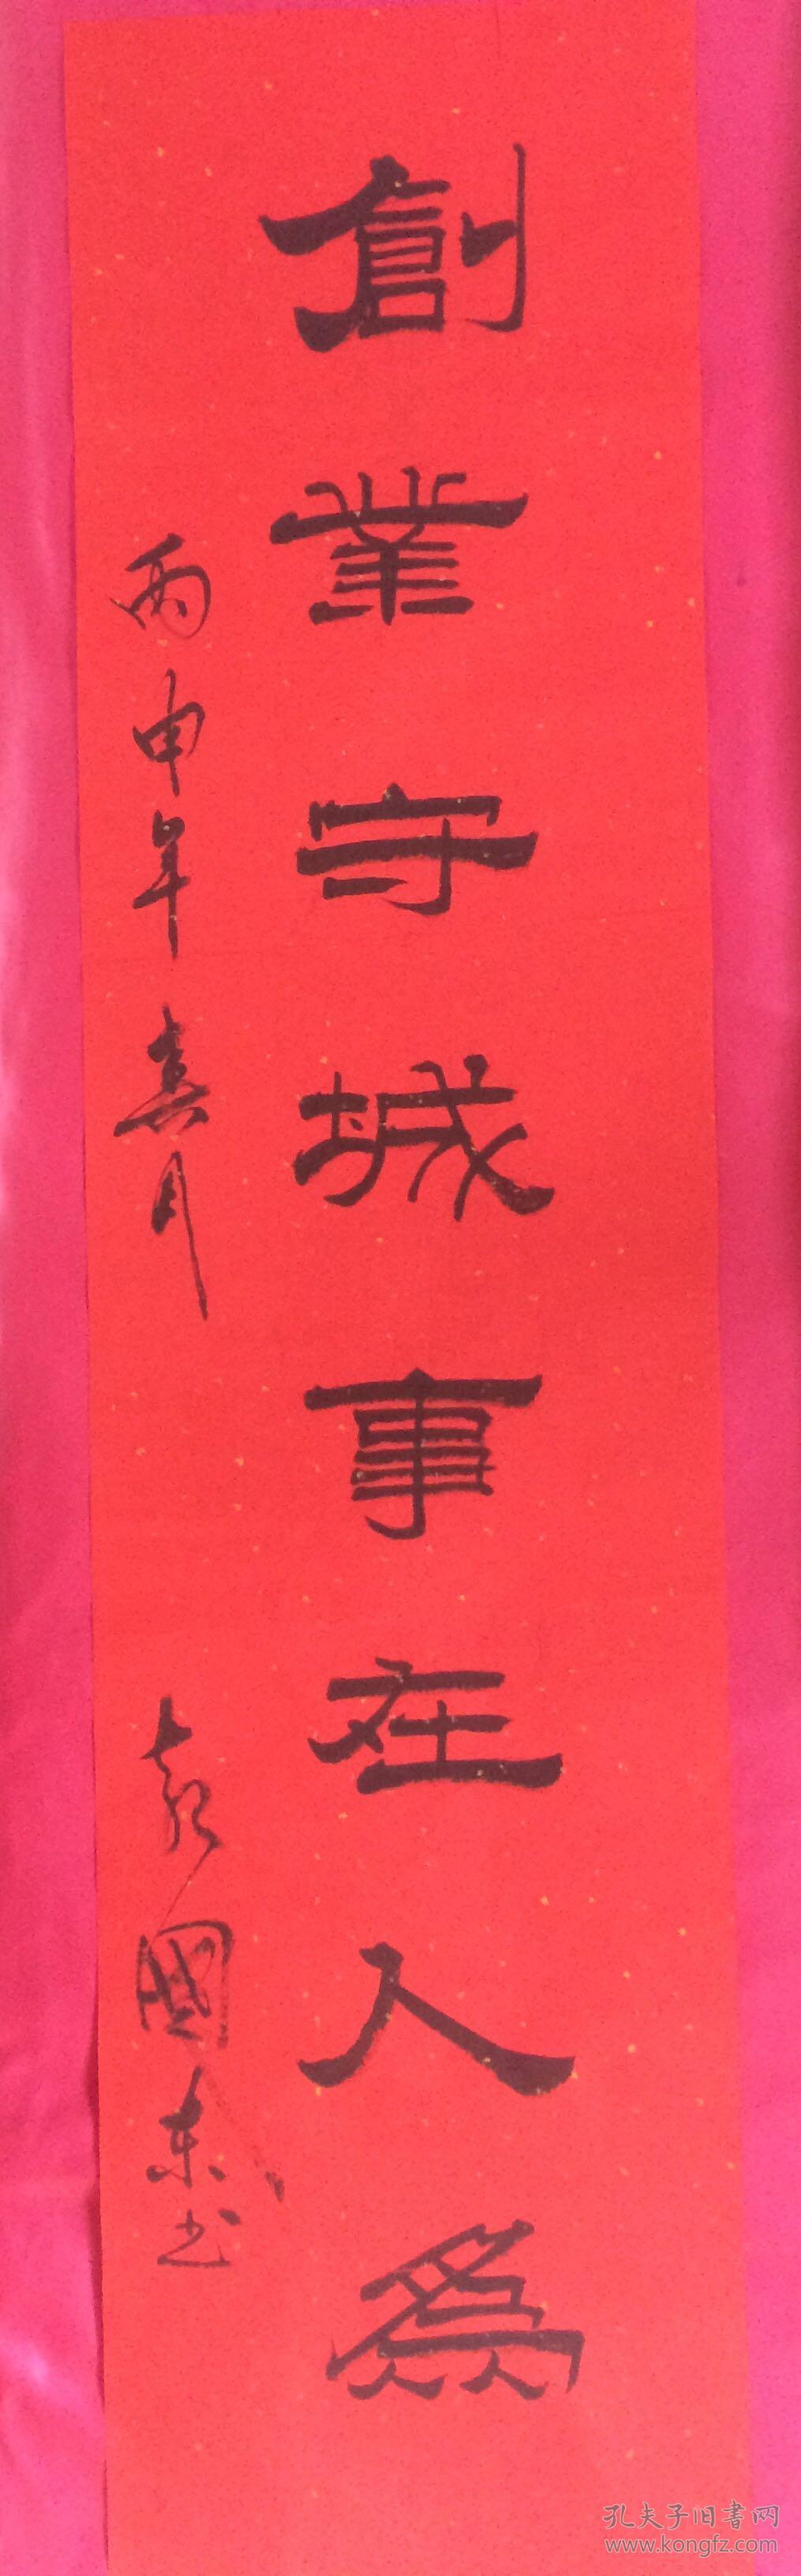 創業守城事在人為
丙申年喜月
袁國東书
孔夫子旧書网
www.kongfz.com